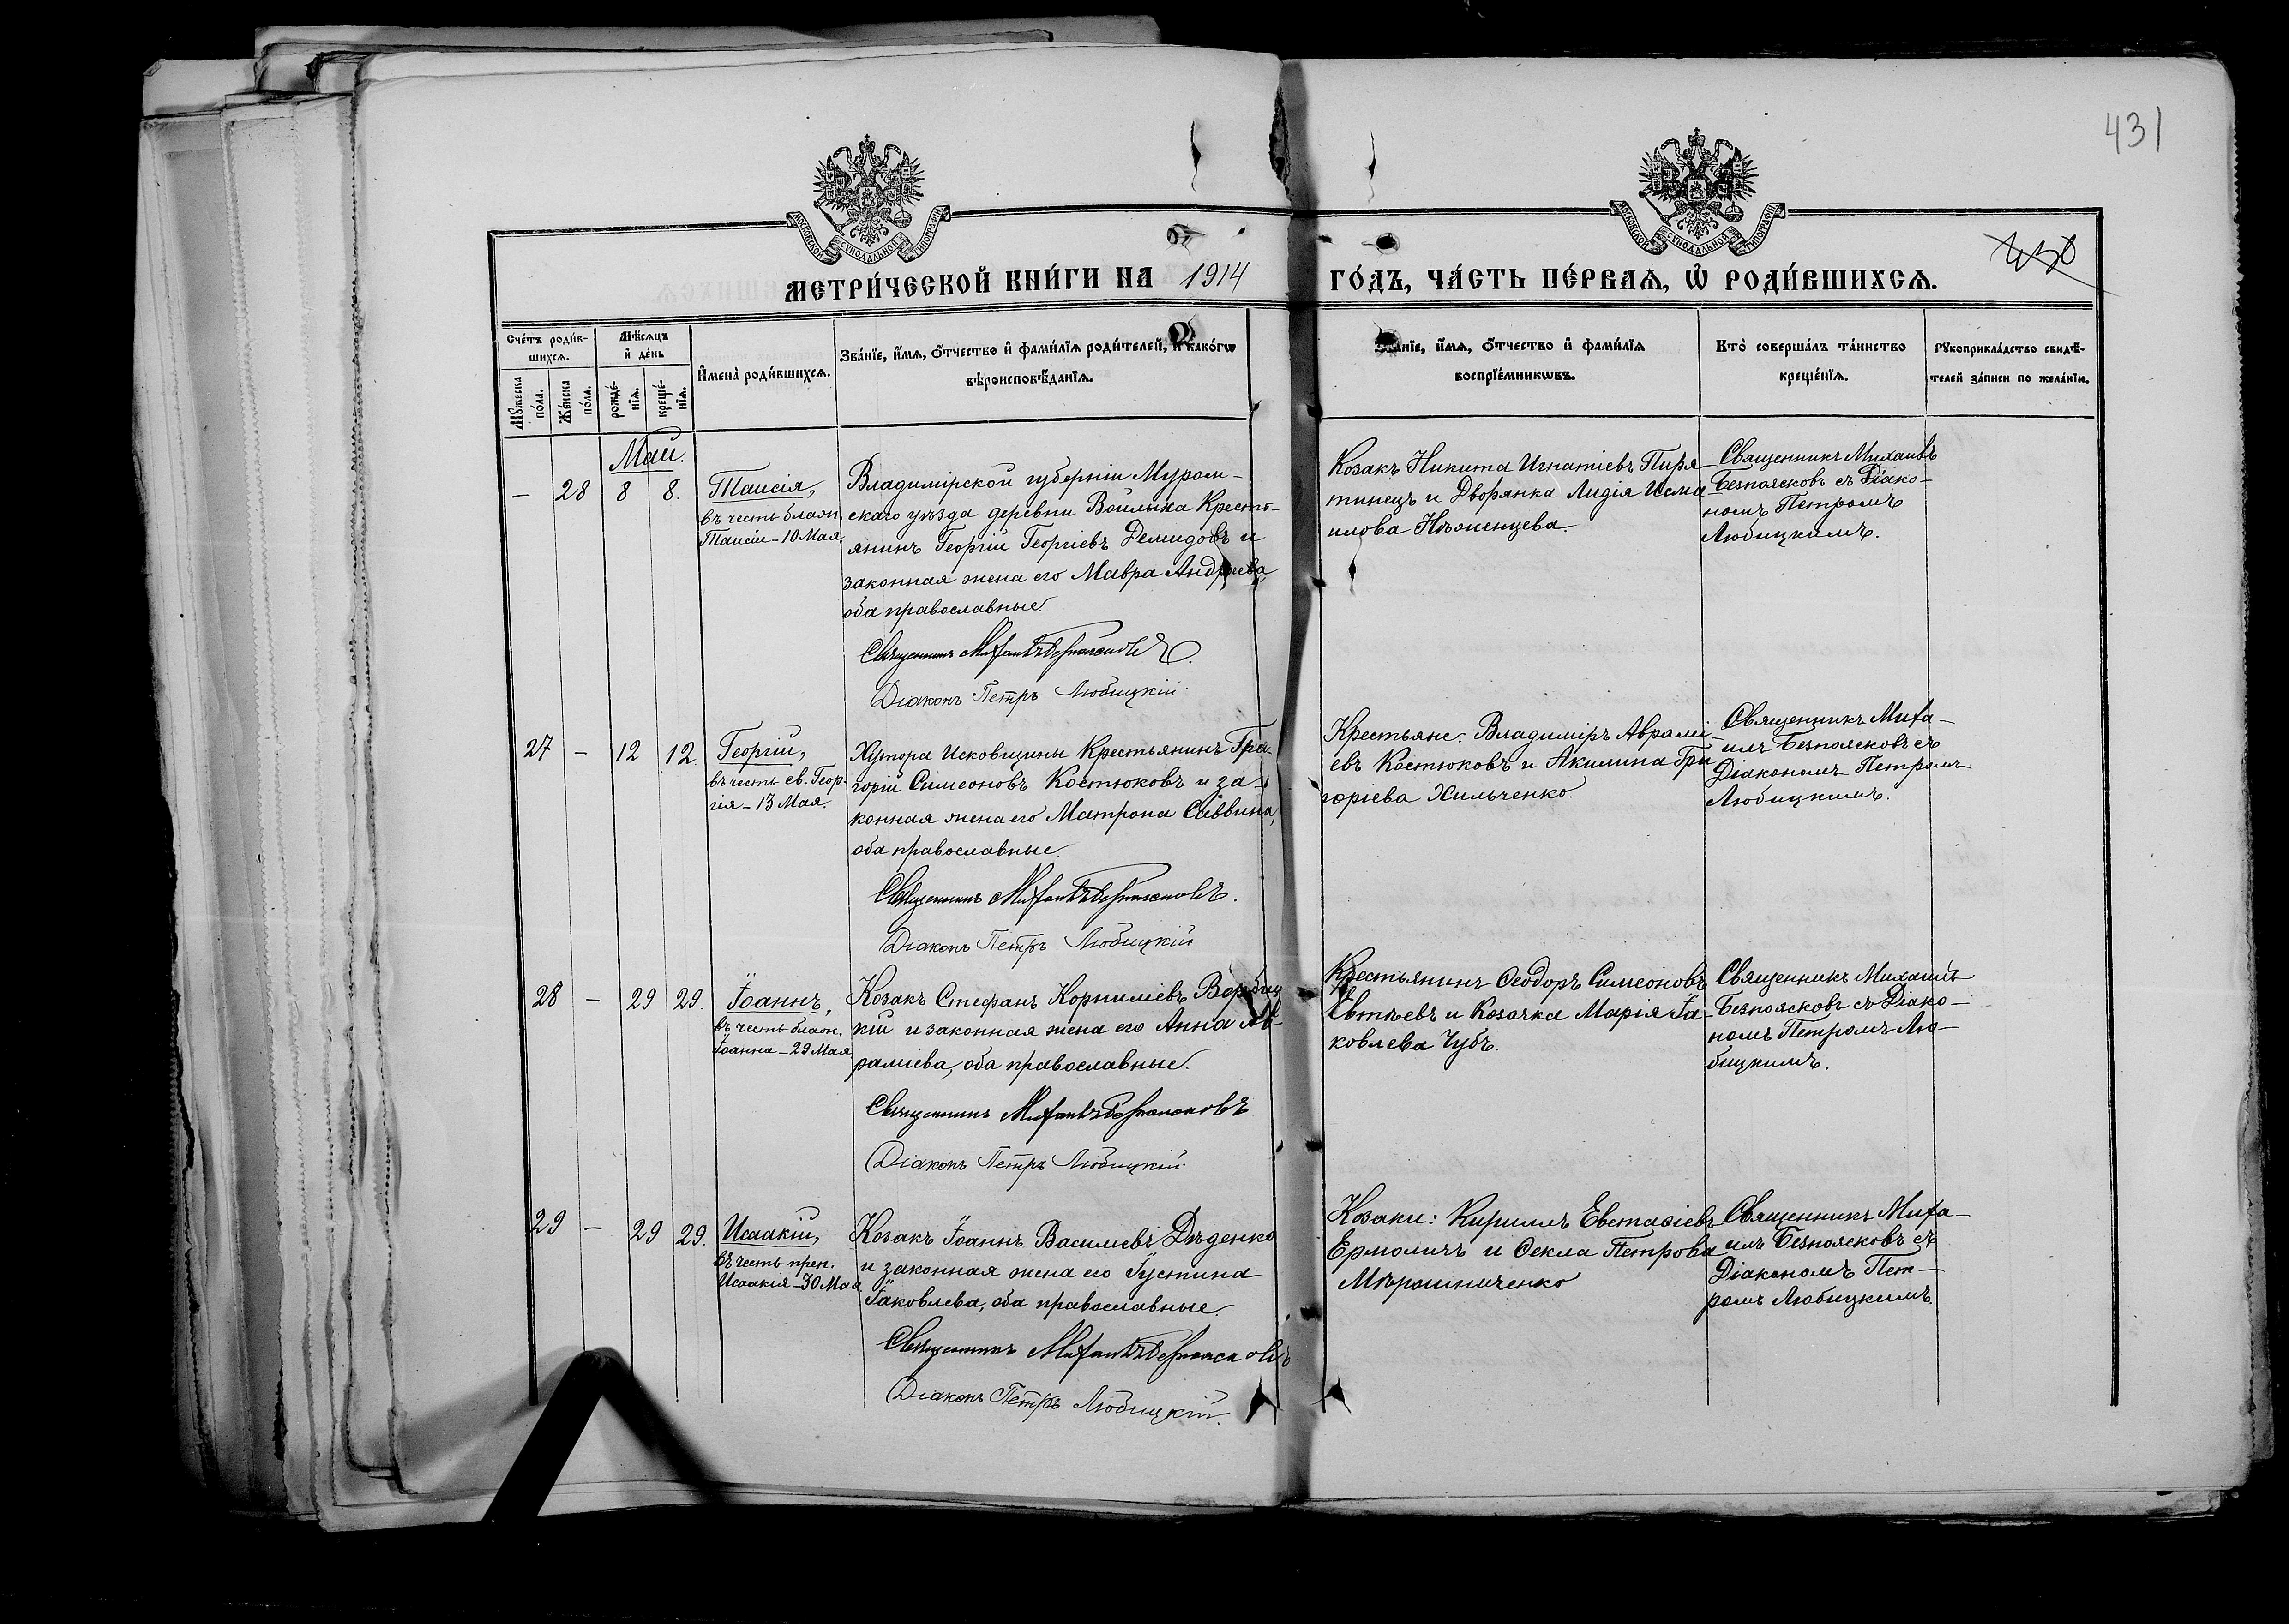 431
МОСКОВСКОЙ СѴНОДАЛЬНОЙ ТИПОГРАФІИ
МОСКОВСКОЙ СѴНОДАЛЬНОЙ ТИПОГРАФІИ
МЕТРИ́ЧЕСКОЙ КНИ́ГИ НА 1914 ГО́ДЪ, ЧА́СТЬ ПЕ́РВАѦ, Ѽ РОДИ́ВШИХСѦ.
Сче́тъ роди́в-
шихсѧ.
Мꙋ́жеска
по́ла.
Же́нска
по́ла.
Мѣ́сѧцъ
и҆ де́нь
рожде́-
нїѧ.
креще́-
нїѧ.
И҆мена̀ роди́вшихсѧ.
Зва́нїе, и҆́мѧ, ѻ҆́тчество и҆ фамилїѧ роди́телей, и҆ како́гѡ
вѣроисповѣ́данїѧ.
Зва́нїе, и҆́мѧ, ѻ҆́тчество и҆ фами́лїѧ
воспрїе́мникѡвъ.
Кто̀ соверша́лъ та́инство
креще́нїѧ.
Рꙋкоприкла́дство свидѣ́-
телей за́писи по жела́нїю.
Май.
— 28 8 8.
Таисія,
въ честь блаж.
Таисіи – 10 Мая
Владимірской губерніи Муром-
скаго уѣзда деревни Войлика Кресть-
янинъ Георгій Георгіевъ Демидовъ и
законная жена его Мавра Андреева,
оба православные.
Священникъ Михаилъ Безпоясковъ.
Діаконъ Петръ Любицкій.
Козакъ Никита Игнатіевъ Пиря-
тинецъ и Дворянка Лидія Исма-
илова Нѣженцева.
Священникъ Михаилъ
Безпоясковъ съ Діако-
номъ Петромъ
Любицкимъ.
27 — 12 12.
Георгій,
въ честь св. Геор-
гія – 13 Мая.
Хутора Исковщины Крестьянинъ Гри-
горій Симеоновъ Костюковъ и за-
конная жена его Матрона Саввина,
оба православные.
Священникъ Михаилъ Безпоясковъ.
Діаконъ Петръ Любицкій
Крестьяне: Владиміръ Аврамі-
евъ Костюковъ и Акилина Гри-
горіева Хильченко.
Священникъ Миха-
илъ Безпоясковъ съ
Діакономъ Петромъ
Любицкимъ.
28 — 29 29.
Іоаннъ,
въ честь блаж.
Іоанна – 29 Мая
Козакъ Стефанъ Корниліевъ Вербиц-
кій и законная жена его Анна Ав-
раміева, оба православные.
Священникъ Михаилъ Безпоясковъ
Діаконъ Петръ Любицкій.
Крестьянинъ Ѳеодоръ Симеоновъ
Евтѣевъ и Козачка Марія Іа-
ковлева Чубъ.
Священникъ Михаилъ
Безпоясковъ съ Діако-
номъ Петромъ Лю-
бицкимъ.
29 — 29 29.
Исаакій,
въ честь преп.
Исаакія – 30 Мая
Козакъ Іоаннъ Василіевъ Дѣденко
и законная жена его Іустина
Іаковлева, оба православные.
Священникъ Михаилъ Безпоясковъ
Діаконъ Петръ Любицкій.
Козаки: Кириллъ Евстаѳіевъ
Ермоличъ и Ѳекла Петрова
Мѣрошниченко
Священникъ Миха-
илъ Безпоясковъ съ
Діакономъ Пет-
ромъ Любицкимъ.